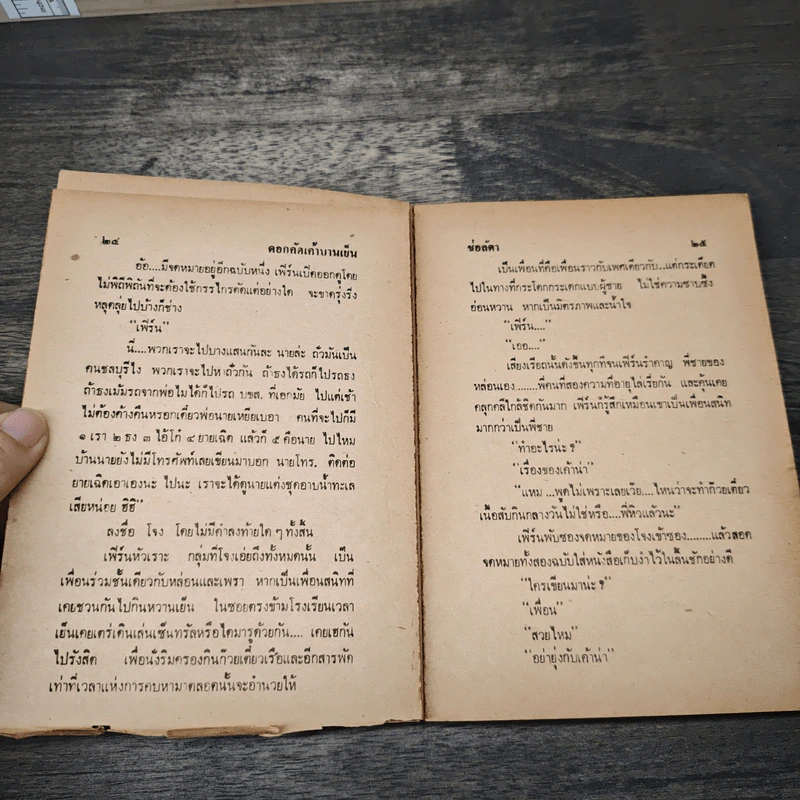 ๒๔ ดอกคัดเค้าบานเย็น
อ้อ....มีจดหมายอยู่อีกฉบับหนึ่ง เพิร์นเปิดออกดูโดย
ไม่พิถีพิถันที่จะต้องใช้กรรไกรตัดแต่อย่างใด จะขาดรุ่งริ่ง
หลุดลุ่ยไปบ้างก็ช่าง
“เพิร์น”
นี่....พวกเราจะไปบางแสนกันละ นายล่ะ ถ้ามันเป็น
คนชลบุรีไง พวกเราจะไปหาถั่วกัน ถ้าธงได้รถก็ไปรถธง
ถ้าธงเม้มรถจากพ่อไม่ได้ก็ไปรถ บขส. ที่เอกมัย ไปแต่เช้า
ไม่ต้องค้างคืนหรอกเดี๋ยวพ่อนายเหยียบเอา คนที่จะไปก็มี
๑ เรา ๒ ธง ๓ ไอ้โก๋ ๔ ยายเฉิด แล้วก็ ๕ คือนาย ไปไหม
บ้านนายยังไม่มีโทรศัพท์เลยเขียนมาบอก นายโทร. ติดต่อ
ยายเฉิดเอาเองนะ ไปนะ เราจะได้ดูนายแต่งชุดอาบน้ำทะเล
เสียหน่อย ฮิฮิ”
ลงชื่อ โจง โดยไม่มีคำลงท้ายใด ๆ ทั้งสิ้น
เพิร์นหัวเราะ กลุ่มที่โจงเอ่ยถึงทั้งหมดนั้น เป็น
เพื่อนร่วมชั้นเดียวกับหล่อนและเพรา หากเป็นเพื่อนสนิทที่
เคยชวนกันไปกินหวานเย็น ในซอยตรงข้ามโรงเรียนเวลา
เย็นเคยเตร่เดินเล่นเซ็นทรัลหรือไดมารูด้วยกัน.... เคยเฮกัน
ไปรังสิต เพื่อนั่งริมคลองกินก๋วยเตี๋ยวเรือและอีกสารพัด
เท่าที่เวลาแห่งการคบหามาตลอดนั้นจะอำนวยให้
ช่อลัดา ๒๕
เป็นเพื่อนที่คือเพื่อนราวกับเพศเดียวกัน..แต่กระเดียด
ไปในทางที่กระโดกกระเดกแบบผู้ชาย ไม่ใช่ความซาบซึ้ง
อ่อนหวาน หากเป็นมิตรภาพและน้ำใจ
“เพิร์น....”
“เออ....”
เสียงเรียกนั้นดังขึ้นทุกทีจนเพิร์นรำคาญ พี่ชายของ
หล่อนเอง........พี่คนที่สองความที่อายุไล่เรี่ยกัน และคุ้นเคย
คลุกคลีใกล้ชิดกันมาก เพิร์นก็รู้สึกเหมือนเขาเป็นเพื่อนสนิท
มากกว่าเป็นพี่ชาย
“ทำอะไรน่ะ ?”
“เรื่องของเค้าน่า”
“แหม ...พูดไม่เพราะเลยเว้ย....ไหนว่าจะทำก๋วยเตี๋ยว
เนื้อสับกินกลางวันไม่ใช่หรือ....พี่หิวแล้วนะ”
เพิร์นพับซองจดหมายของโจงเข้าซอง........แล้วสอด
จดหมายทั้งสองฉบับใส่หนังสือเก็บงำไว้ในลิ้นชักอย่างดี
“ใครเขียนมาน่ะ ?”
“เพื่อน”
“สวยไหม”
“อย่ายุ่งกับเค้าน่า”